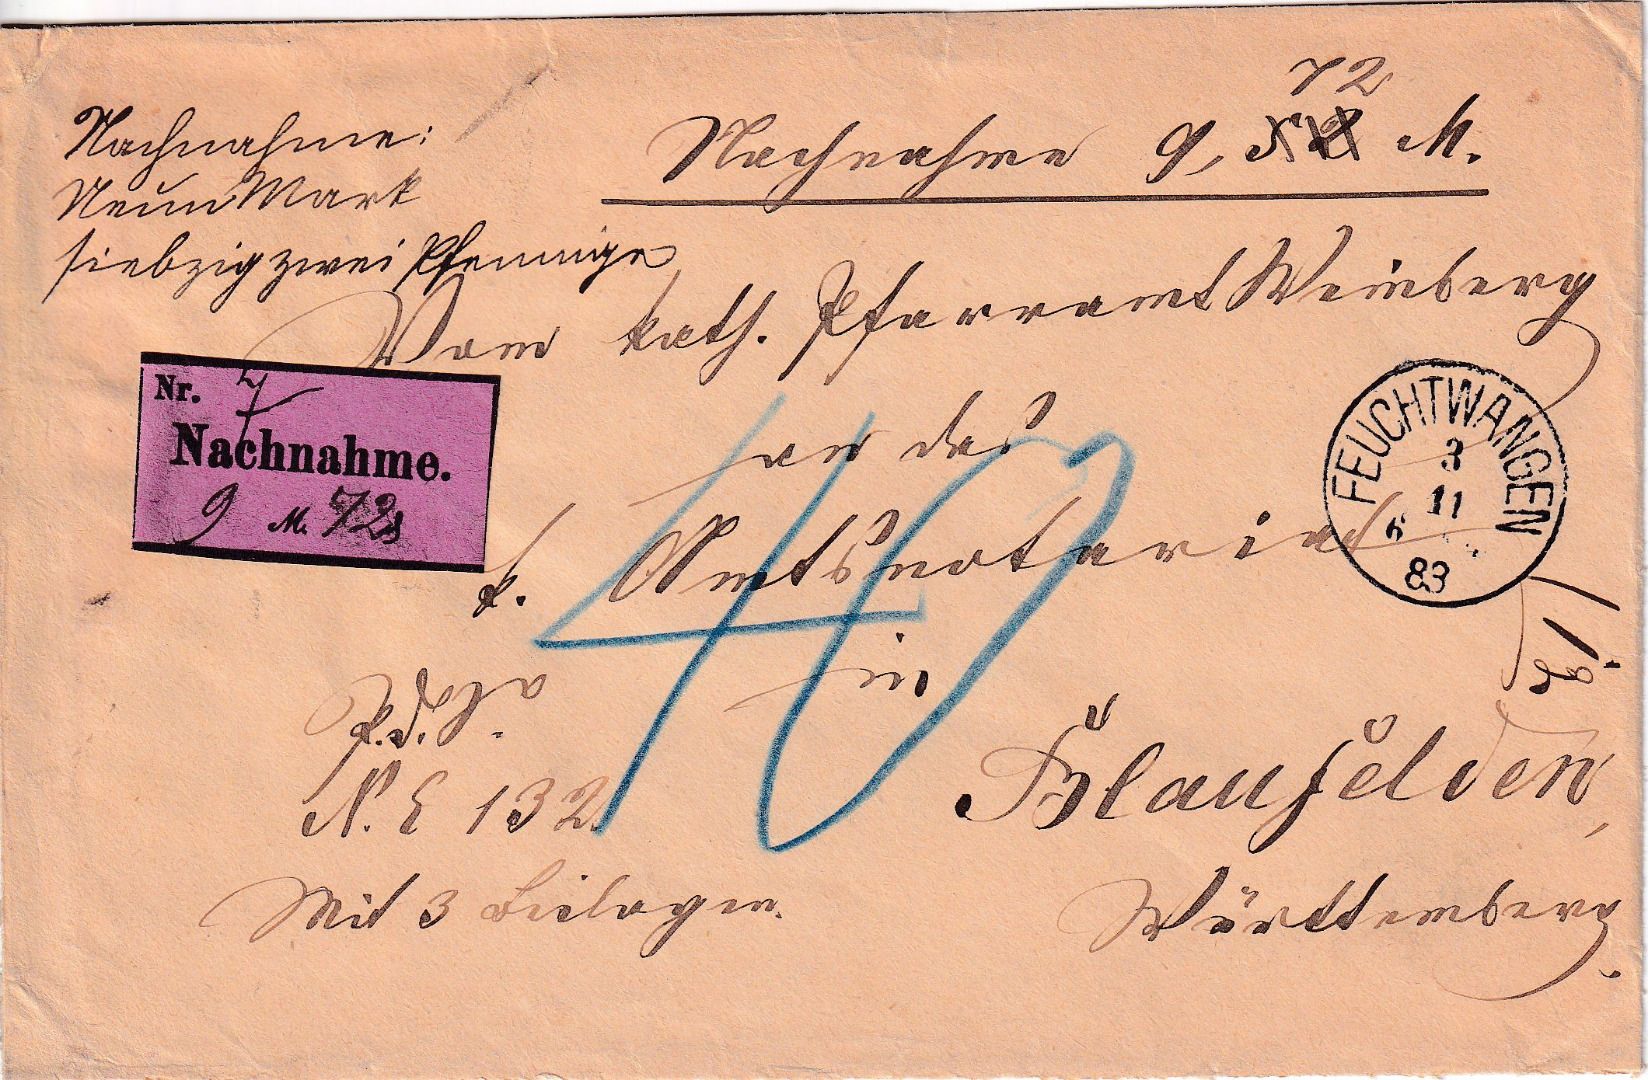 72
Nachnahme 9, 52 M.
Nachnahme:
Neun Mark
siebzig zwei Pfennige
Vom kath. Pfarramt Weinberg
Nr. 7
Nachnahme.
9 M. 72
an das
k. Amtsnotariat
in
Blaufelden,
Württemberg.
FEUCHTWANGEN
3
11
6
83
40
P.d.S.
N. E 132
Mit 3 Beilagen.